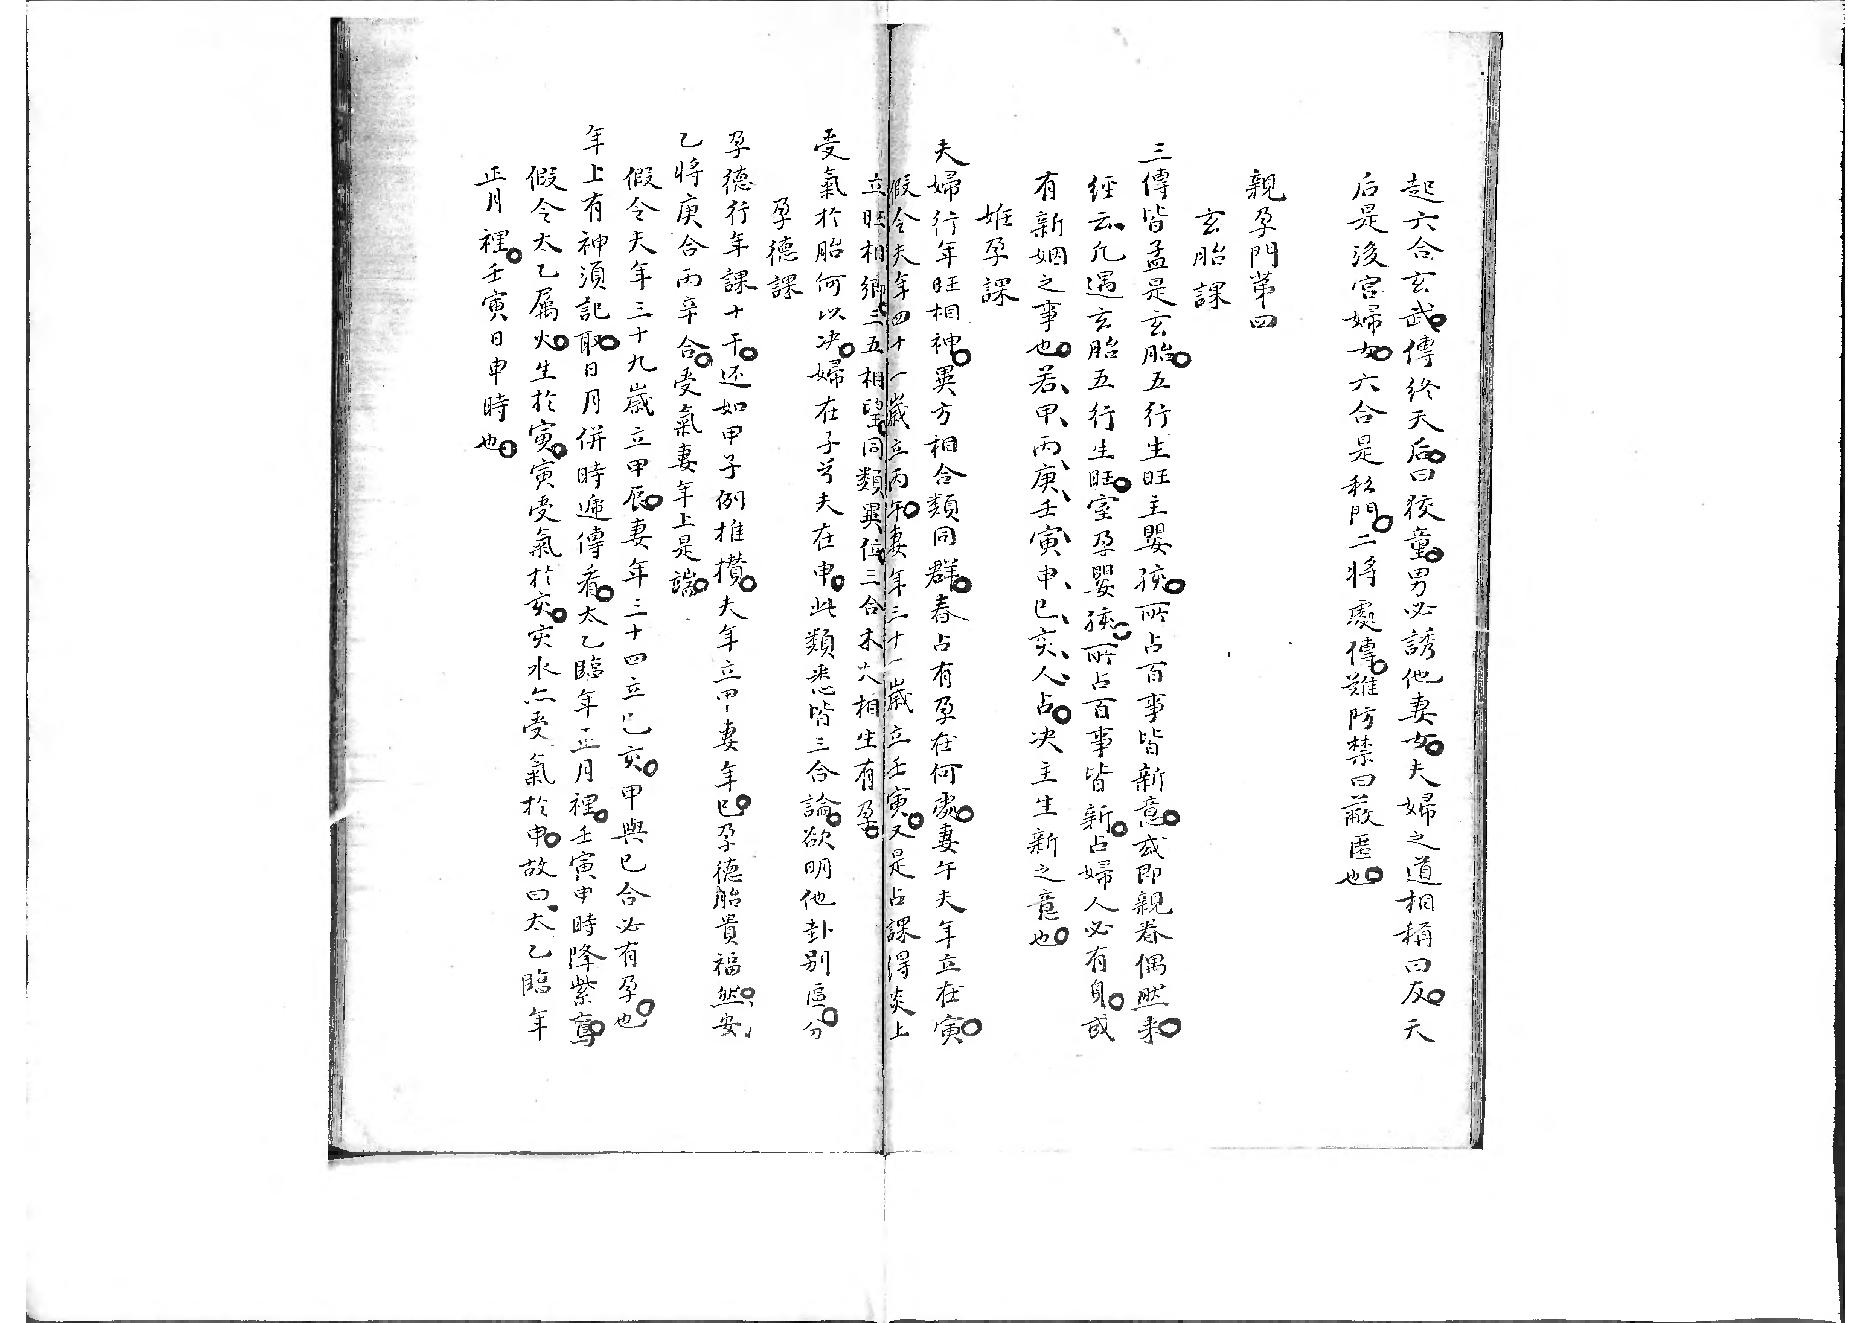 起六合玄武傳終天后曰狡童男必誘他妻女夫婦之道相稱曰反天
后是後宮婦女六合是私門二將處傳難防禁曰蔽匿也
親孕門第四
玄胎課
三傳皆孟是玄胎五行生旺主嬰孩所占百事皆新意或即親眷偶然來
經云凡遇玄胎五行生旺室孕嬰孩所占百事皆新占婦人必有身或
有新姻之事也若甲丙庚壬寅申巳亥人占决主生新之意也
姙孕課
夫婦行年旺相神異方相合類同群春占有孕在何處妻午夫年立在寅
假令夫年四十一歲立丙午妻年三十一歲立壬寅又是占課得炎上
立旺相鄉三五相望同類異位三合木火相生有孕
受氣於胎何以决婦在子兮夫在申此類悉皆三合論欲明他卦別區分
孕德課
孕德行年課十干还如甲子例推攢夫年立甲妻年巳孕德胎貴福然安
乙將庚合丙辛合受氣妻年上是端
假令夫年三十九歲立甲辰妻年三十四立巳亥甲與巳合必有孕也
年上有神須記取日月併時遞傳看太乙臨年正月裡壬寅申時降紫鸞
假令太乙屬火生於寅寅受氣於亥亥水亦受氣於申故曰太乙臨年
正月裡壬寅日申時也